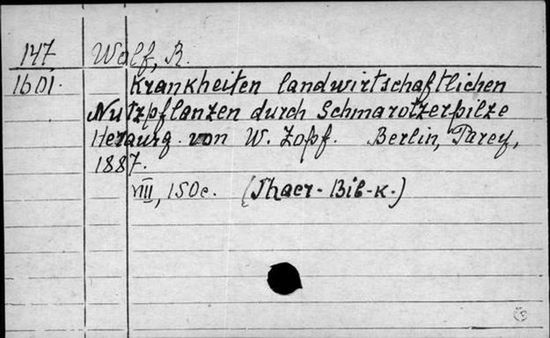 147 Wolf, R.
1601. Krankheiten landwirtschaftlichen
Nutzpflanzen durch Schmarotzerpilze
Herausg. von W. Zopf. Berlin, Parey,
1887.
VIII, 150c. (Thaer-Bib-k.)